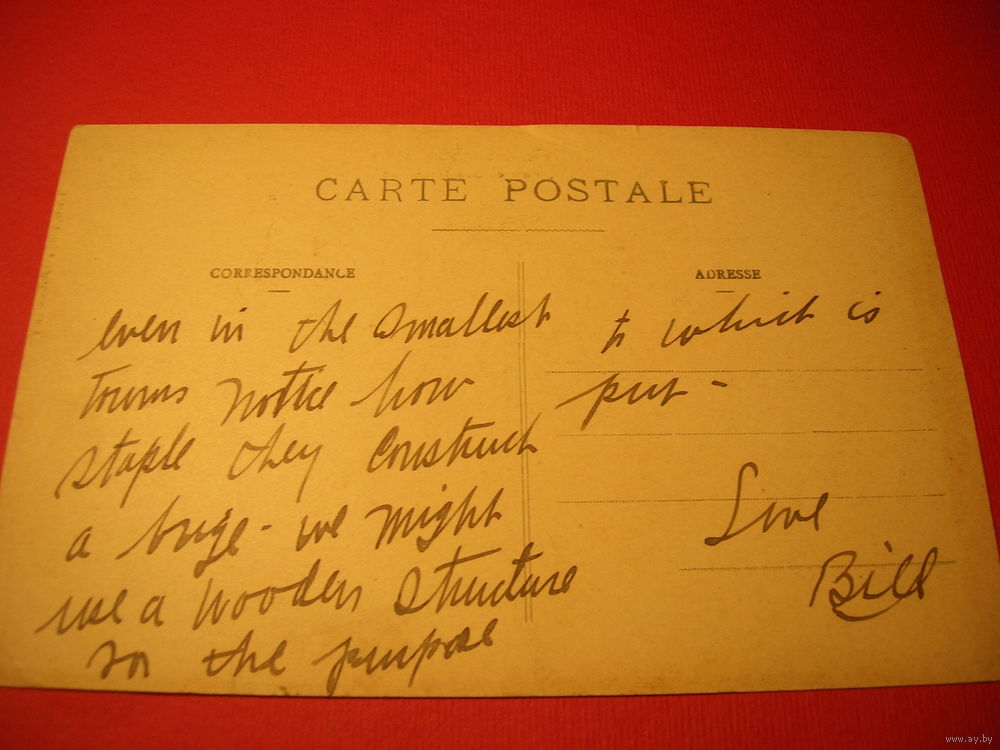 CARTE POSTALE
CORRESPONDANCE
even in the smallest
towns notice how
staple they construct
a brige - we might
use a wooden structure
for the purpose
ADRESSE
to which is
put -
Love
Bill
www.ay.by